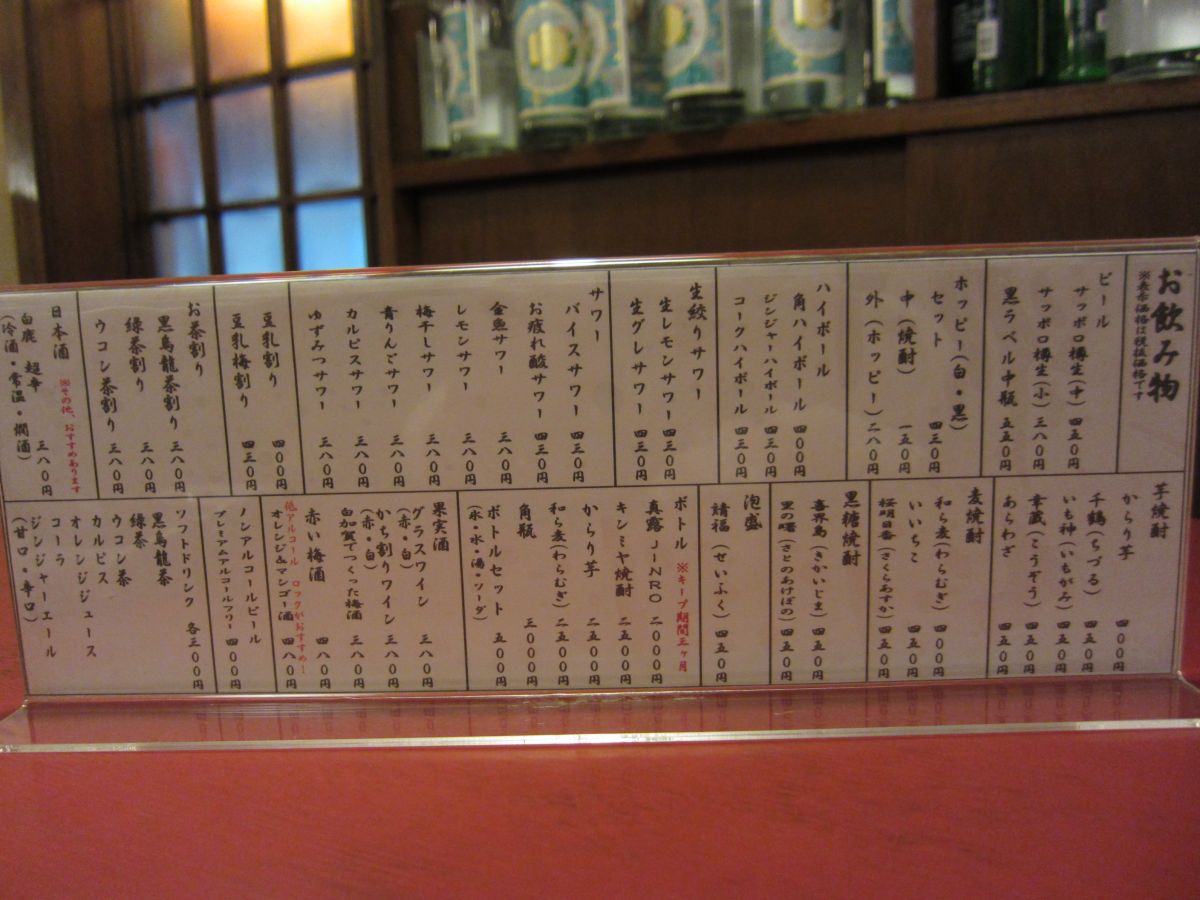 お飲み物
※表示価格は税抜価格です
ビール
サッポロ樽生(中) 四五〇円
サッポロ樽生(小) 三八〇円
黒ラベル中瓶 五五〇円
ホッピー(白・黒)
セット 四三〇円
中(焼酎) 一五〇円
外(ホッピー) 二八〇円
ハイボール
角ハイボール 四〇〇円
ジンジャーハイボール 四三〇円
コークハイボール 四三〇円
生絞りサワー
生レモンサワー 四三〇円
生グレサワー 四三〇円
サワー
バイスサワー 四三〇円
お疲れ酸サワー 四三〇円
金魚サワー 三八〇円
レモンサワー 三八〇円
梅干しサワー 三八〇円
青りんごサワー 三八〇円
カルピスサワー 三八〇円
ゆずみつサワー 三八〇円
豆乳割り 四〇〇円
豆乳梅割り 四三〇円
お茶割り
黒烏龍茶割り 三八〇円
緑茶割り 三八〇円
ウコン茶割り 三八〇円
日本酒 ※その他、おすすめあります
白鹿 超辛 三八〇円
(冷酒・常温・燗酒)
芋焼酎
からり芋 四〇〇円
千鶴(ちづる) 四五〇円
いも神(いもがみ) 四五〇円
幸蔵(こうぞう) 四五〇円
あらわざ 四五〇円
麦焼酎
和ら麦(わらむぎ) 四〇〇円
いいちこ 四五〇円
桜明日香(さくらあすか) 四五〇円
黒糖焼酎
喜界島(きかいじま) 四五〇円
里の曙(さとのあけぼの) 四五〇円
泡盛
請福(せいふく) 四五〇円
ボトル ※キープ期間三ヶ月
真露 JINRO 二〇〇〇円
キンミヤ焼酎 二五〇〇円
からり芋 二五〇〇円
和ら麦(わらむぎ) 二五〇〇円
角瓶 三〇〇〇円
ボトルセット 五〇〇円
(氷・水・湯・ソーダ)
果実酒
グラスワイン 三八〇円
(赤・白)
かち割りワイン 三八〇円
(赤・白)
白加賀でつくった梅酒
赤い梅酒 四八〇円
オレンジ&マンゴー酒 四八〇円
他アルコール ロックがおすすめ!
ノンアルコールビール
プレミアムアルコールフリー 四〇〇円
ソフトドリンク 各三〇〇円
黒烏龍茶
緑茶
ウコン茶
カルピス
オレンジジュース
コーラ
ジンジャーエール
(甘口・辛口)